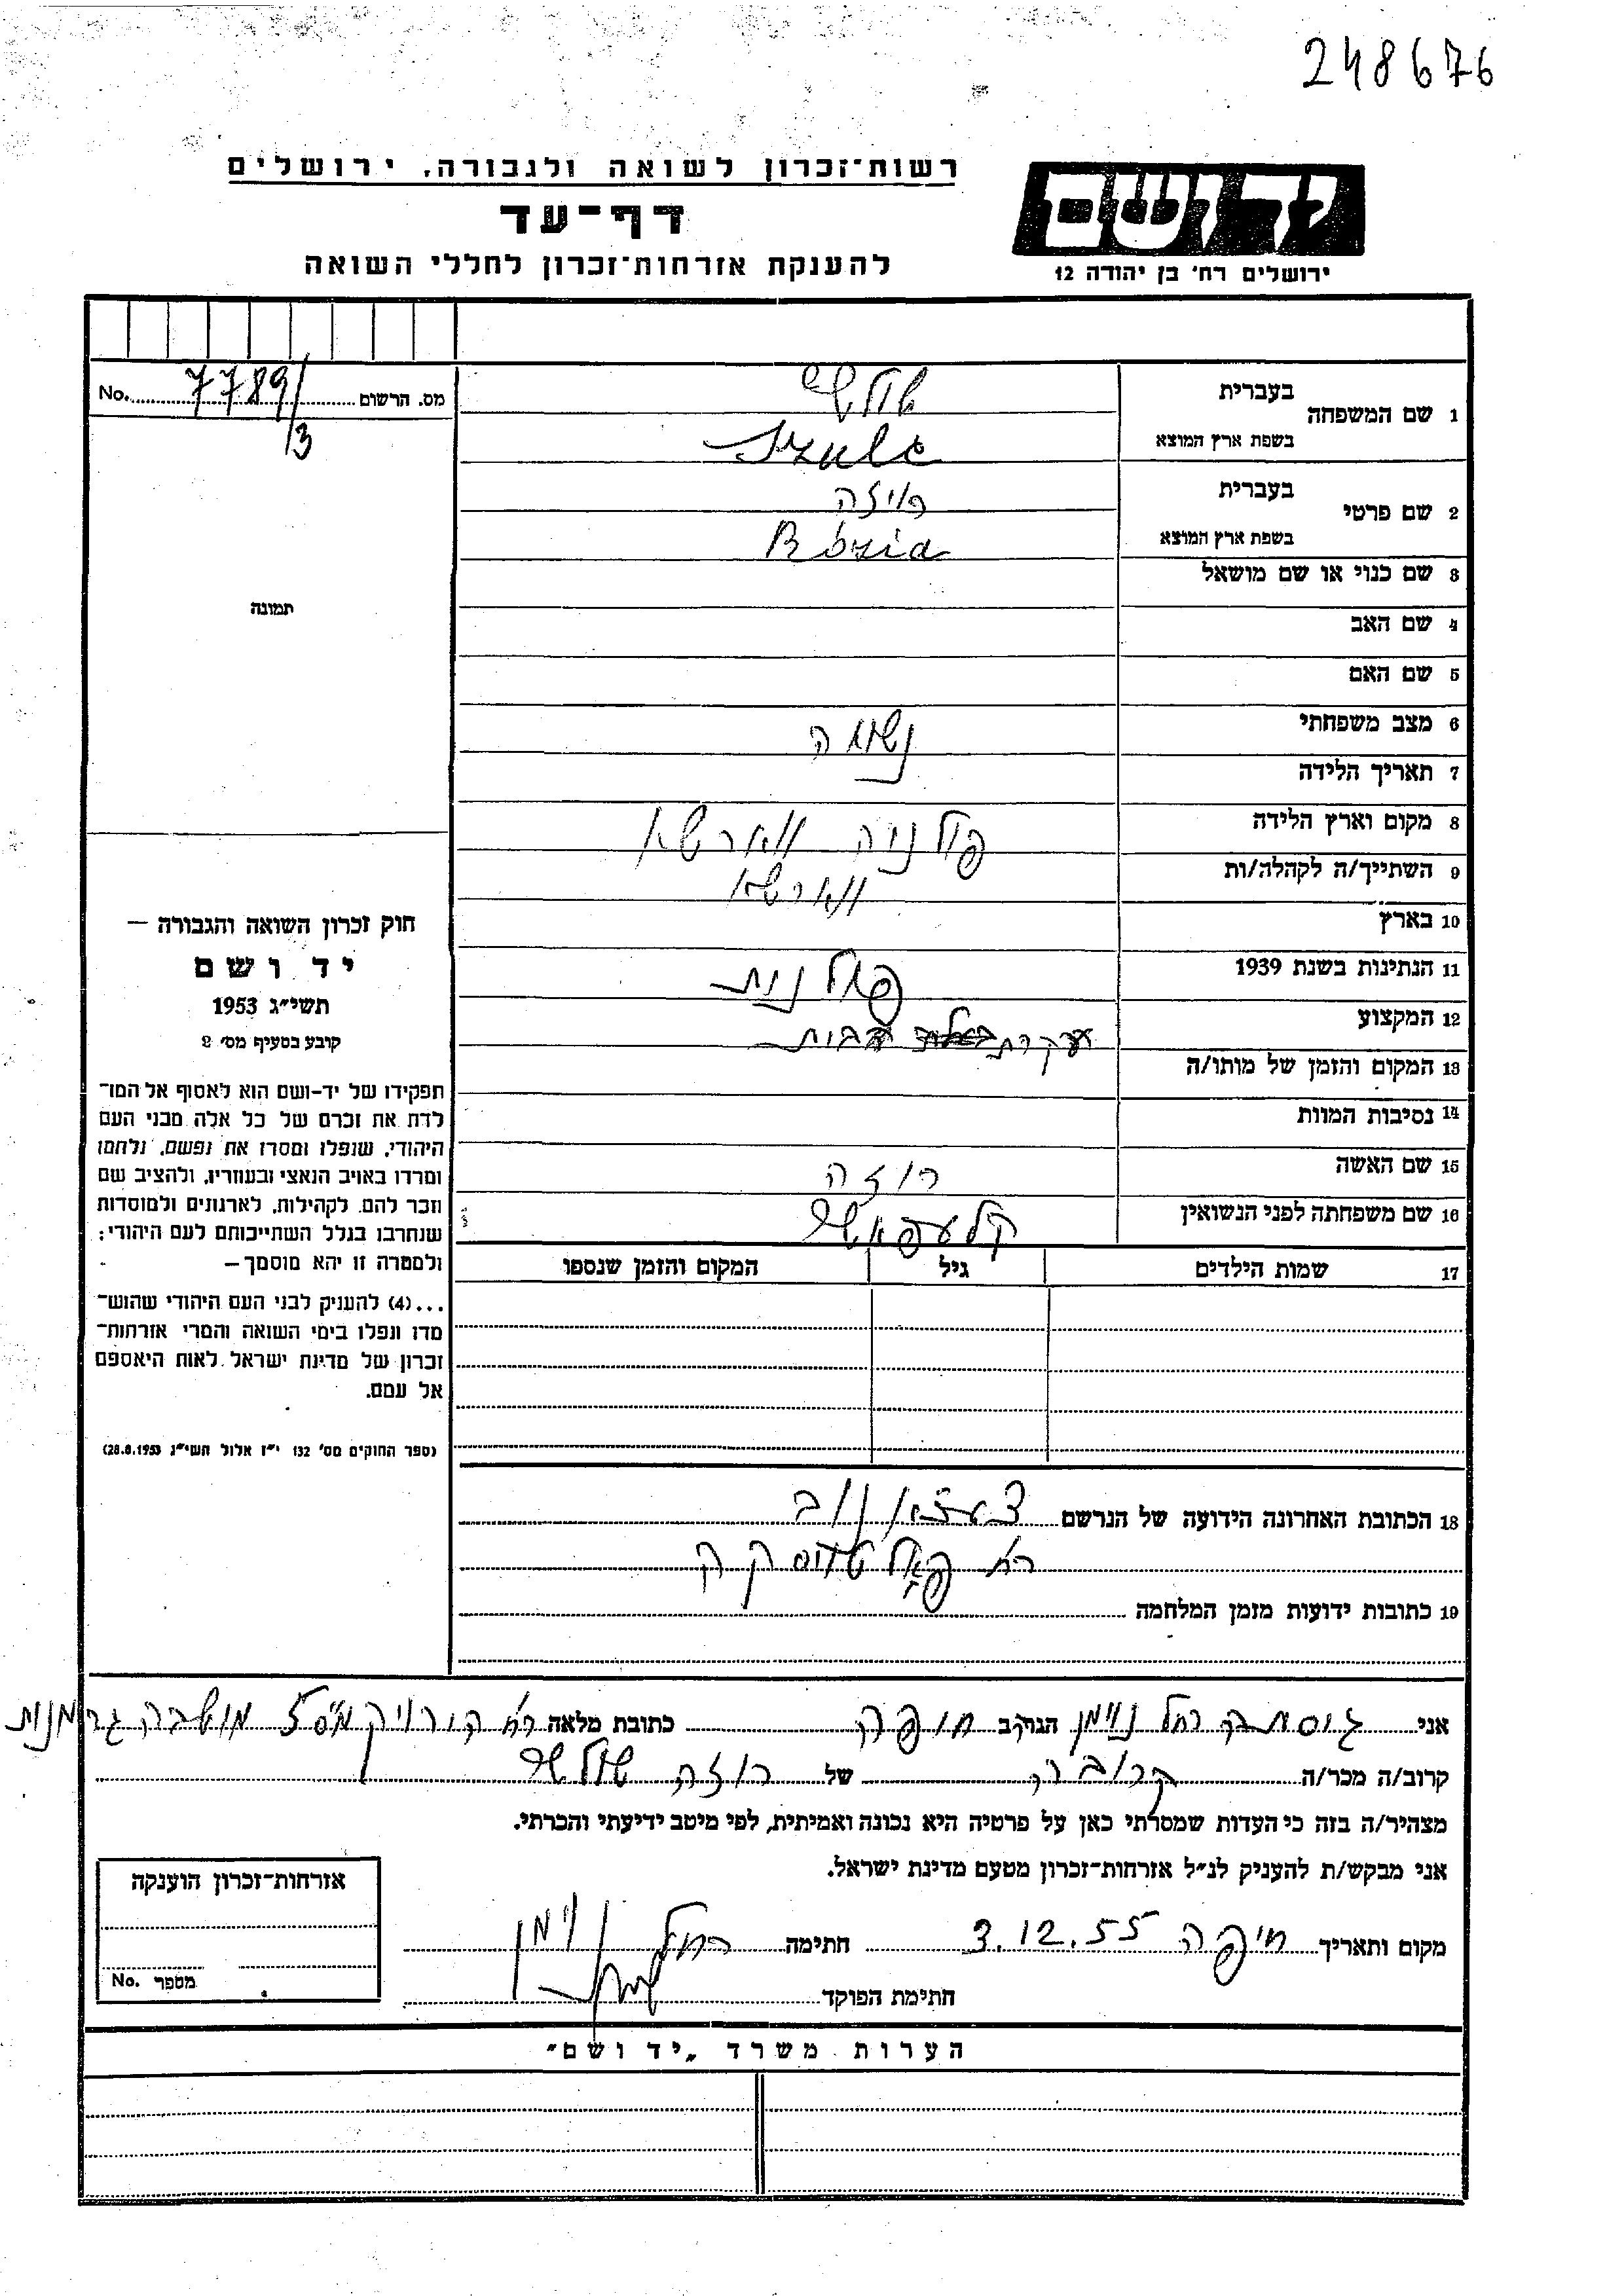 248676
רשות־זכרון לשואה ולגבורה, ירושלים
דף־עד
להענקת אזרחות־זכרון לחללי השואה
יד ושם
ירושלים רח׳ בן יהודה 12
מס. הרשום 7789/3 No.
1 שם המשפחה
בעברית
שולץ
בשפת ארץ המוצא
2 שם פרטי
בעברית רוזה
בשפת ארץ המוצא Rózia
3 שם כנוי או שם מושאל
4 שם האב
5 שם האם
6 מצב משפחתי נשואה
7 תאריך הלידה
8 מקום וארץ הלידה פולניה ווארשא
9 השתייך/ה לקהלה/ות ווארשא
10 בארץ
11 הנתינות בשנת 1939 פולנית
12 המקצוע עקרת בית
13 המקום והזמן של מותו/ה
14 נסיבות המוות
15 שם האשה רוזה
16 שם משפחתה לפני הנשואין
17 שמות הילדים גיל המקום והזמן שנספו
תמונה
חוק זכרון השואה והגבורה –
יד ושם
תשי״ג 1953
קובע בסעיף מס׳ 2
תפקידו של יד־ושם הוא לאסוף אל המו־
לדת את זכרם של כל אלה מבני העם
היהודי, שנפלו ומסרו את נפשם, נלחמו
ומרדו באויב הנאצי ובעוזריו, ולהציב שם
וזכר להם, לקהילות, לארגונים ולמוסדות
שנחרבו בגלל השתייכותם לעם היהודי;
ולמטרה זו יהא מוסמך–
...(4) להעניק לבני העם היהודי שהוש־
מדו ונפלו בימי השואה והמרי אזרחות־
זכרון של מדינת ישראל לאות היאספם
אל עמם.
(ספר החוקים מס׳ 132 י״ז אלול תשי״ג 28.8.1953)
18 הכתובת האחרונה הידועה של הנרשם
19 כתובות ידועות מזמן המלחמה
אני רחל ניימן הגר/ב חיפה כתובת מלאה רח׳ מושבה גרמנית
קרוב/ה מכר/ה קרובה של רוזה שולץ
מצהיר/ה בזה כי העדות שמסרתי כאן על פרטיה היא נכונה ואמיתית, לפי מיטב ידיעתי והכרתי.
אני מבקש/ת להעניק לנ״ל אזרחות־זכרון מטעם מדינת ישראל.
מקום ותאריך חיפה 3.12.55 חתימה רחל ניימן
חתימת הפוקד
אזרחות־זכרון הוענקה
מספר No.
הערות משרד „יד ושם״